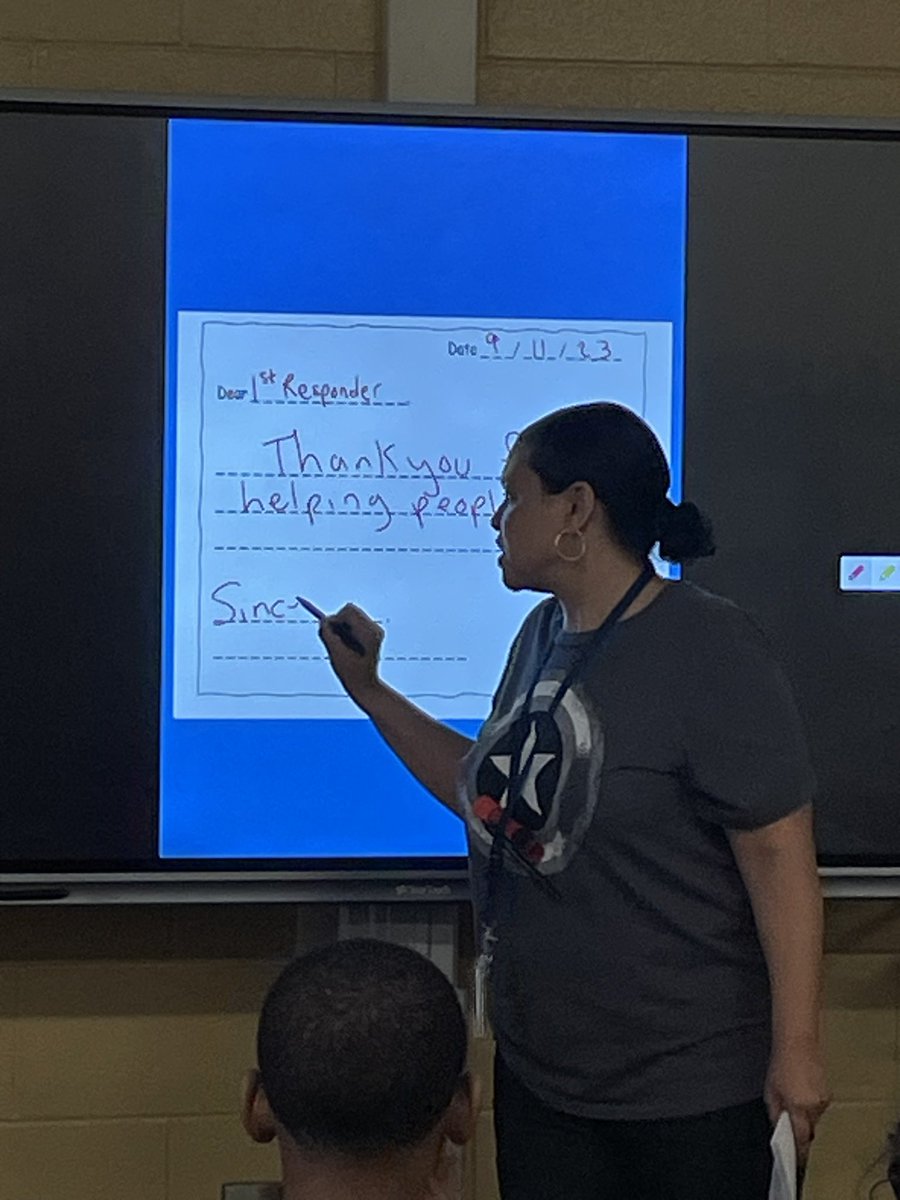 Date 9/11/23
Dear 1st Responder
Thank you
helping peopl
Sinc